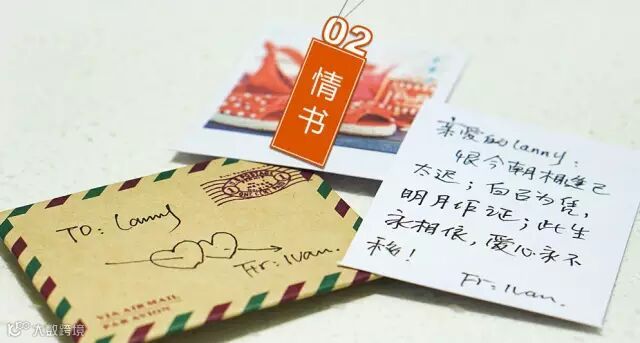 02
情书
亲爱的Lanny：
恨今朝相逢已
太迟；白首为凭，
明月作证；此生
永相依，爱心永不
移！
Fr：Ivan.
TO：Lanny
Fr：Ivan.
VIA AIR MAIL
PAR AVION
大数跨境